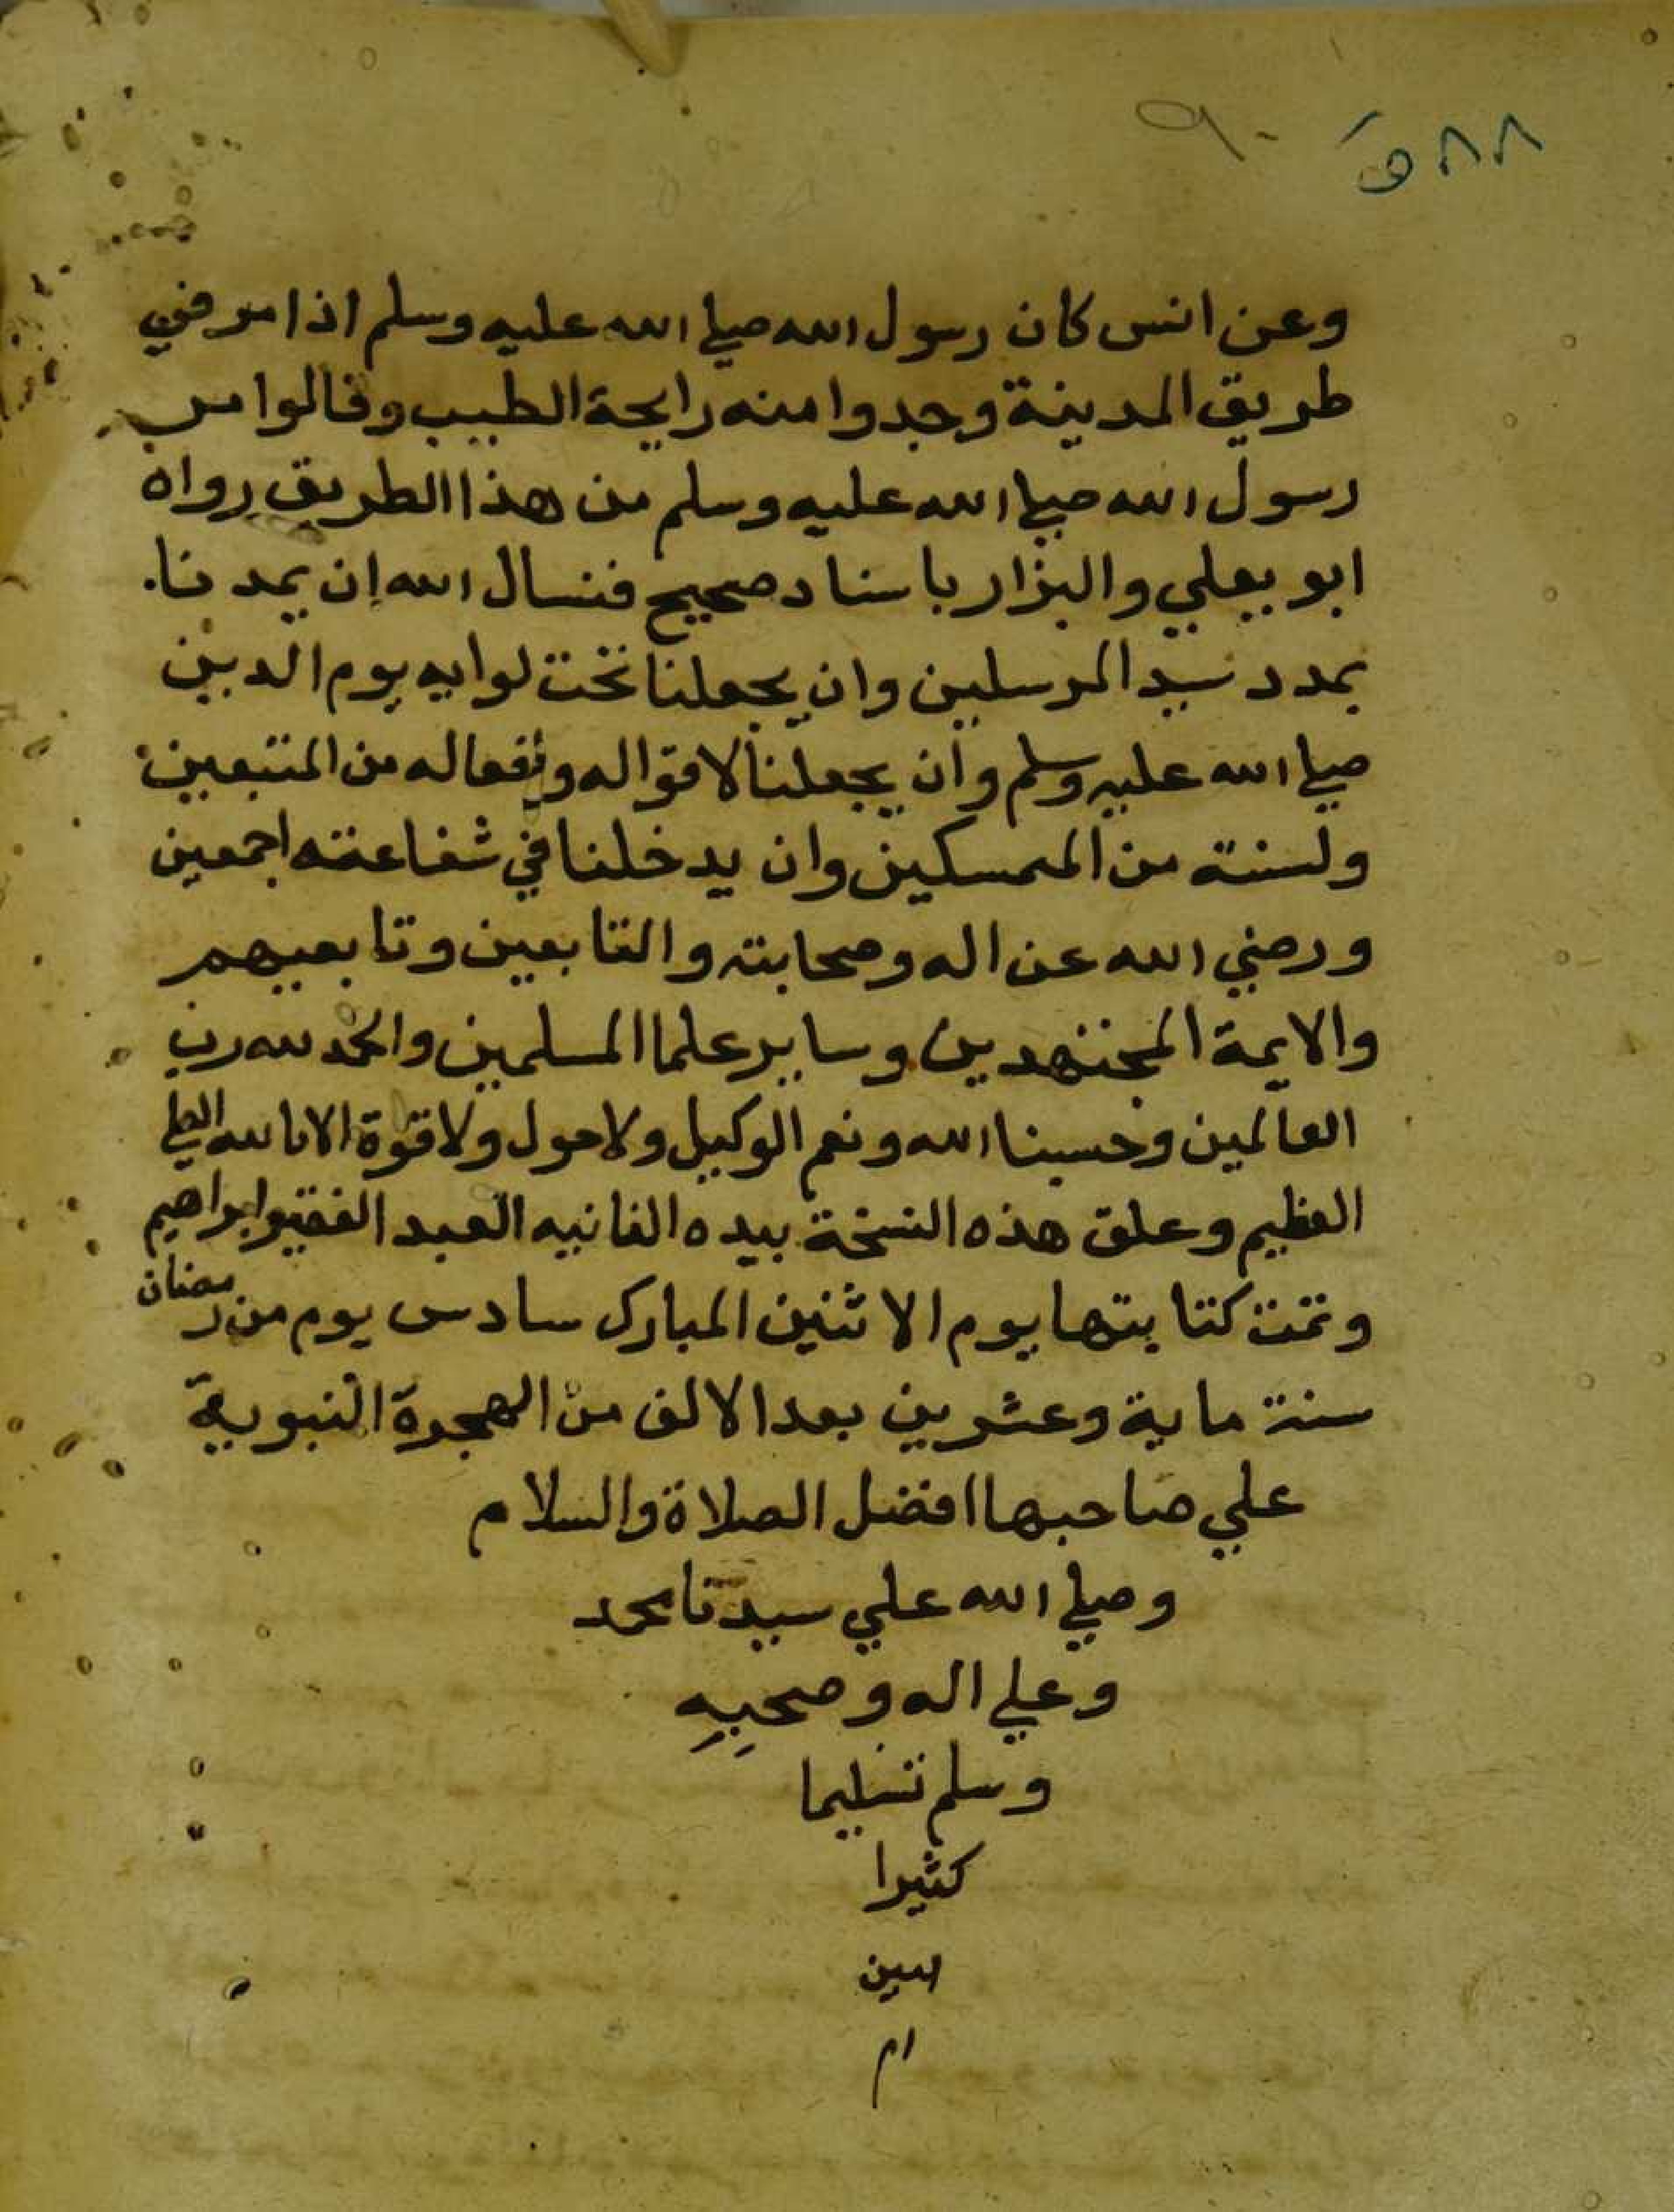 ٩٠ ٥٨٨
وعن انس كان رسول الله صلي الله عليه وسلم اذا مر في
طريق المدينة وجدوا منه رايحة الطيب وقالوا مر
رسول الله صلي الله عليه وسلم من هذا الطريق رواه
ابو يعلي والبزار باسناد صحيح فنسال الله ان يمدنا
بمدد سيد المرسلين وان يجعلنا تحت لوايه يوم الدين
صلي الله عليه وسلم وان يجعلنا لاقواله وافعاله من المتبعين
ولسنته من المتمسكين وان يدخلنا في شفاعته اجمعين
ورضي الله عن اله وصحابته والتابعين وتابعيهم
والايمة المجتهدين وساير علما المسلمين والحمد لله رب
العالمين وحسبنا الله ونعم الوكيل ولا حول ولا قوة الا بالله العلي
العظيم وعلق هذه النسخة بيده الفانيه العبد الفقير ابراهيم
وتمت كتابتها يوم الاثنين المبارك سادس يوم من رمضان
سنة ماية وعشرين بعد الالف من الهجرة النبوية
علي صاحبها افضل الصلاة والسلام
وصلي الله علي سيدنا محمد
وعلي اله وصحبه
وسلم تسليما
كثيرا
امين
ام